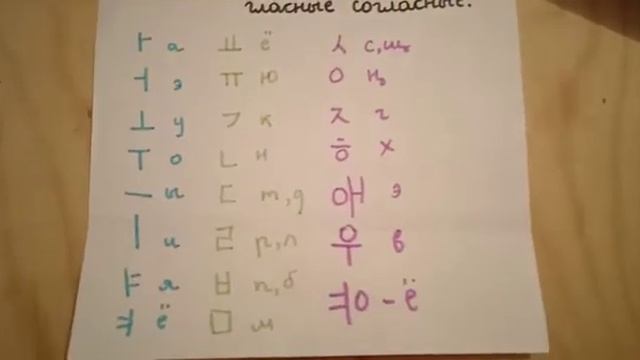 гласные согласные.
ㅏ а ㅛ ё ㅅ с,щ
ㅓ э ㅠ ю ㅇ нъ
ㅗ у ㄱ к ㅈ г
ㅜ о ㄴ н ㅎ х
ㅡ ы ㄷ т,д 애 э
ㅣ и ㄹ р,л 우 в
ㅑ я ㅂ п,б ㅕㅇ - ё
ㅕ ё ㅁ м